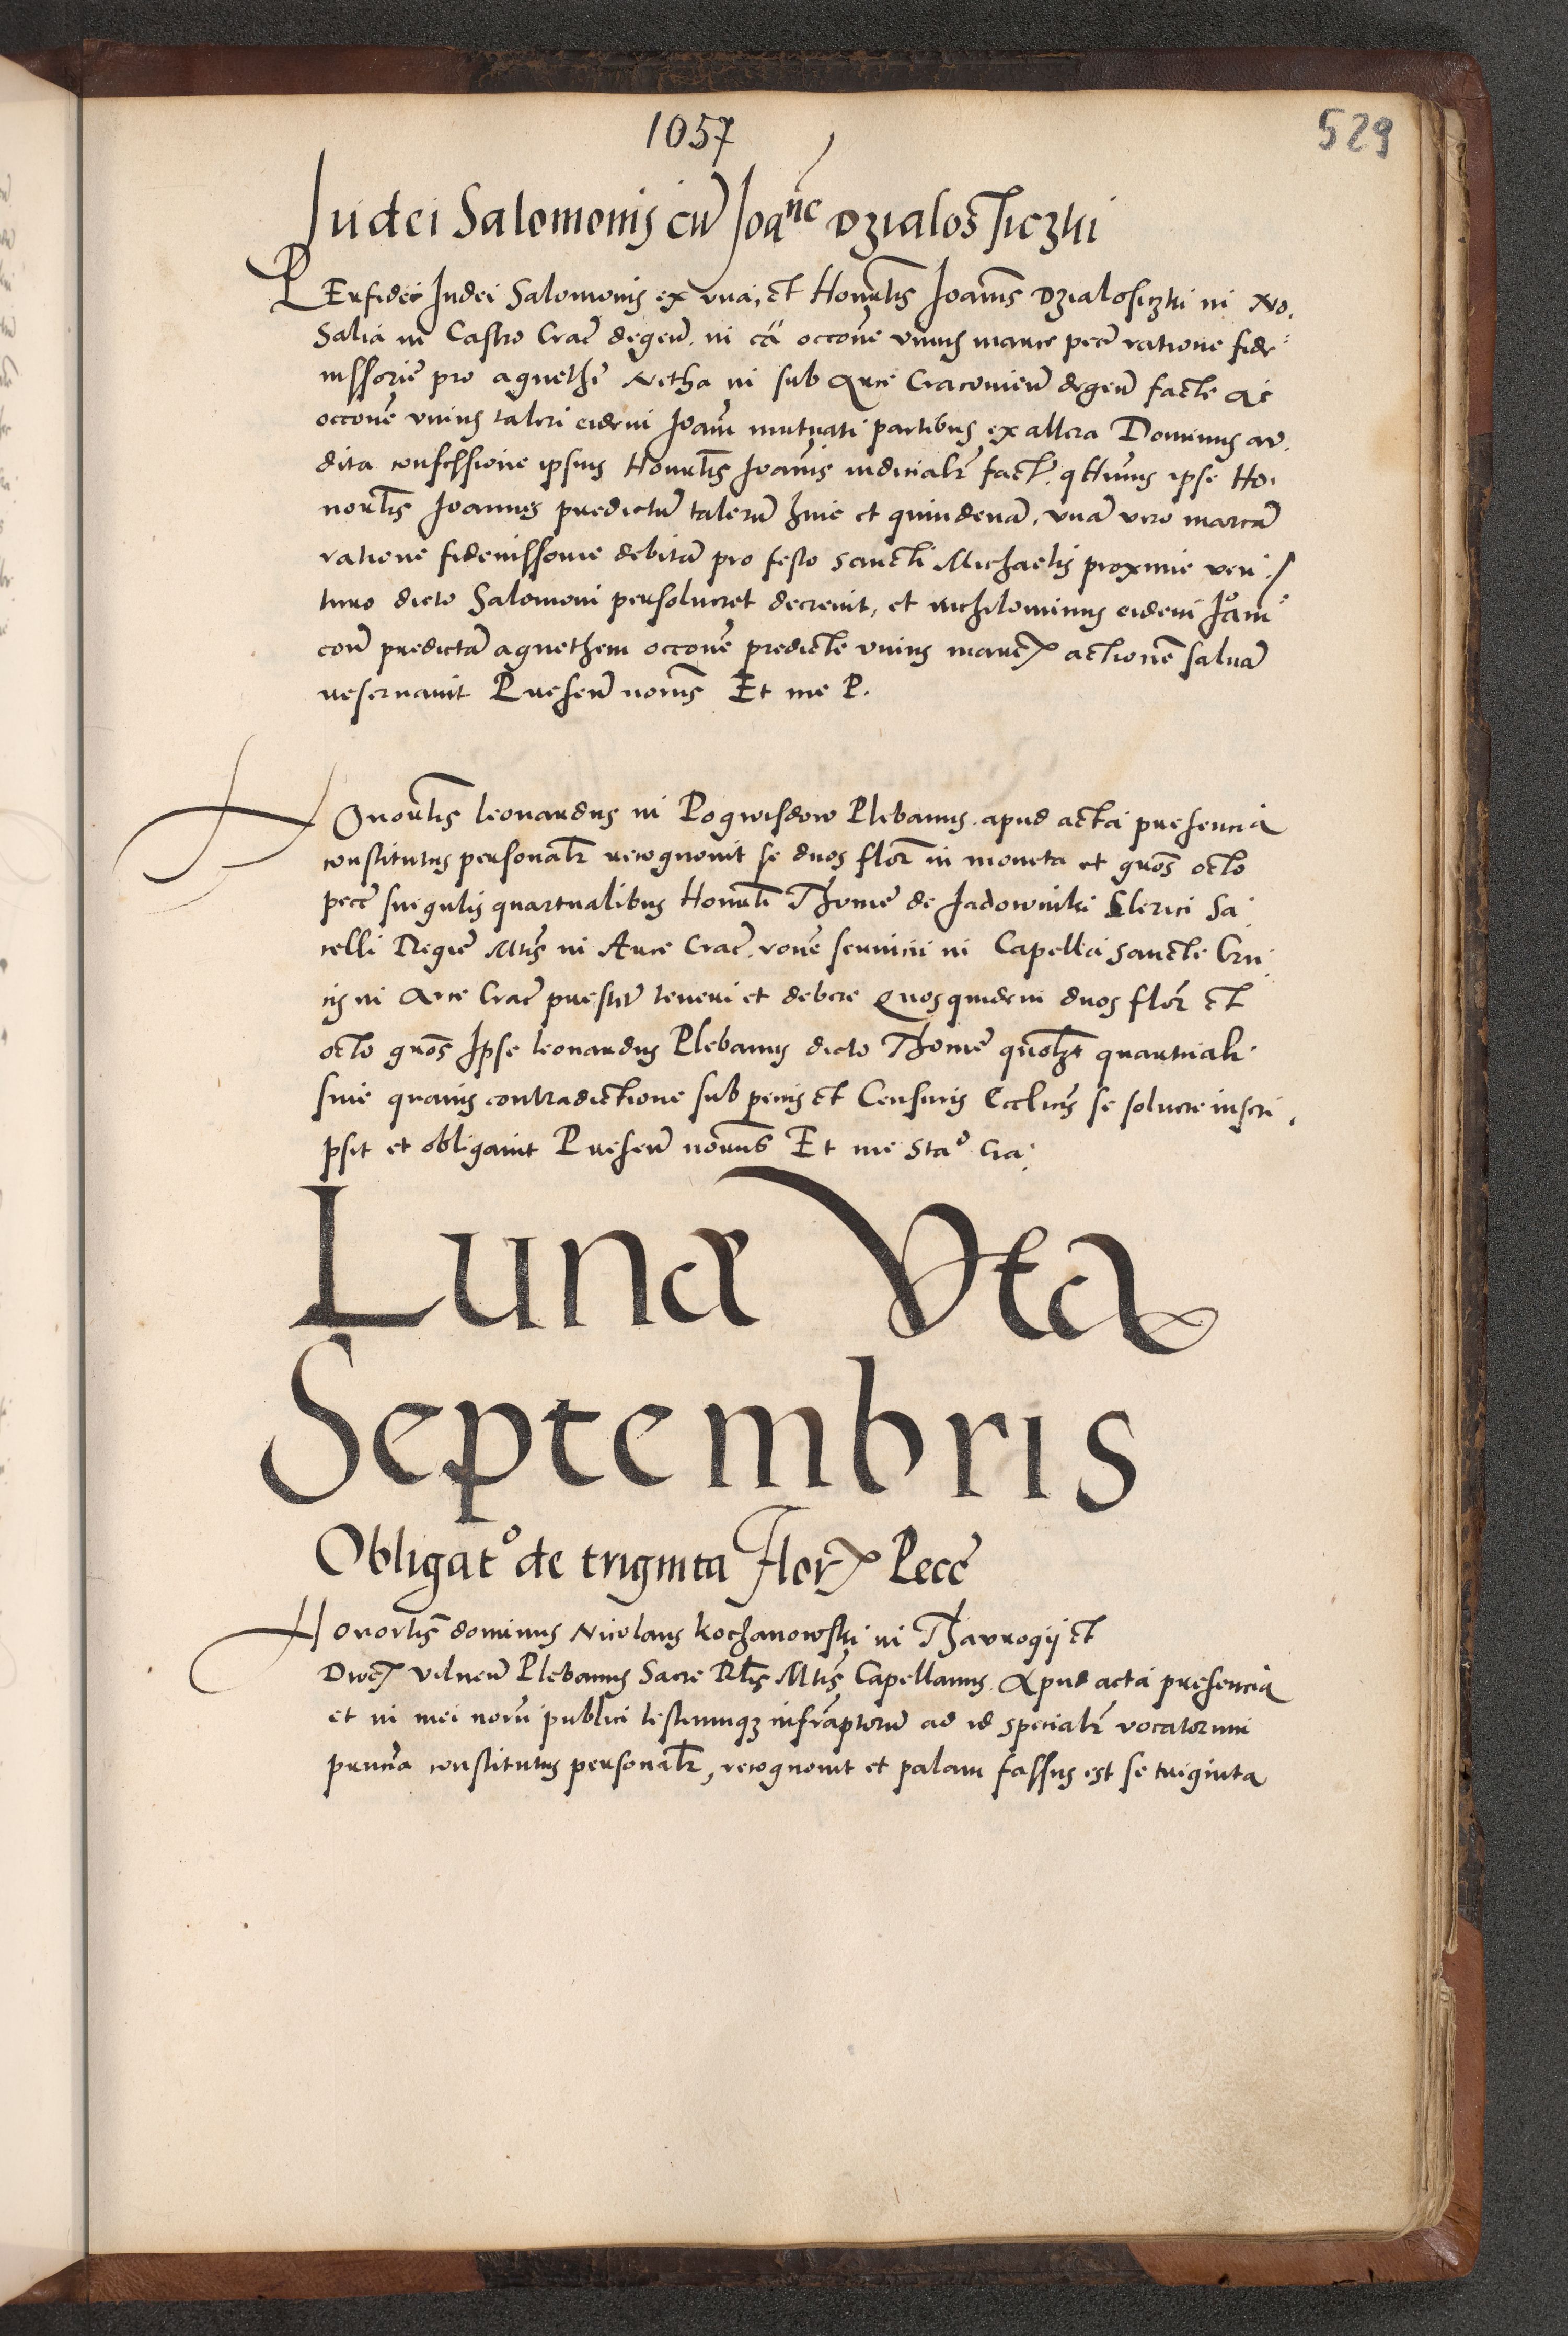 1057
529
Iudei Salomonis cu̅ Ioa^nē Dzialosziczki
PErfidei Iudei Salomonis ex vna, et Honorl̅is Ioann̄s Dzialosiczki in No.
Salia in Castro Crac̄ degen̄. in cā occon̄e vnius marce pec̄ ratione fide
iussorie̅ pro agnethe̅ Netha in sub Arce Cracovien̄ degen̄ facte ac
occon̄e vnius taleri eidem Joan̄i mutuati partibus ex altera Dominus au.
dita confessione ipsius Honorl̅is Joan̄is iudicialr̄ fact. ipse Ho.
norl̅is Joannes predictu̅ taleru̅ hinc et quindena̅, vna̅ vero marca̅
ratione fideiussorie debita̅ pro festo Sancti Michaelis proxime ven
turo dicto Salomoni persolueret decrevit, et nichilominus eidem Joani
con̄ predicta̅ agnethem occon̄e predicte vnius marce actione̅ salua̅
reseruauit Presen̄ Et me P.
HOnorl̅is leonardus in Pogwisdow Plebanus apud acta presencia
constitutus personalr̄ recognovit se duos flor̄ in moneta et gros̄ octo
pec̄ singulis quartualibus Honorl̅i Thome̅ de Jadowniki Clerici Sa
celli Regie̅ Mtis̄ in Arce Crac̄ ron̄e seruicii in Capella Sancte Cru
cis in Arce Crac̄ prestit̄ teneri et debere Quosquidem duos flor̄ et
octo gros̄ Ipse leonardus Plebanus dicto Thome̅ quolz̄t quartuali
sine quauis contradictione sub penis et Censuris Eccl̄icis se soluere inscri
psit et obligauit Presen̄ Et me Sta° Cra.
Lunæ Vta
Septembris
Obligat° de triginta Flor Pec̄e
Honorl̅is dominus Nicolaus Kochanowski in Thaurogij et
Dioc vilnen̄ Plebanus Sacre Rl̄is Mtis̄ Capellanus. Apud acta presencia
et in mei notarii publici testiumqz infrāptoru̅ ad id specialr̄ vocatorum
prn̄cia constitutus personalr̄, recognovit et palam fassus est se triginta